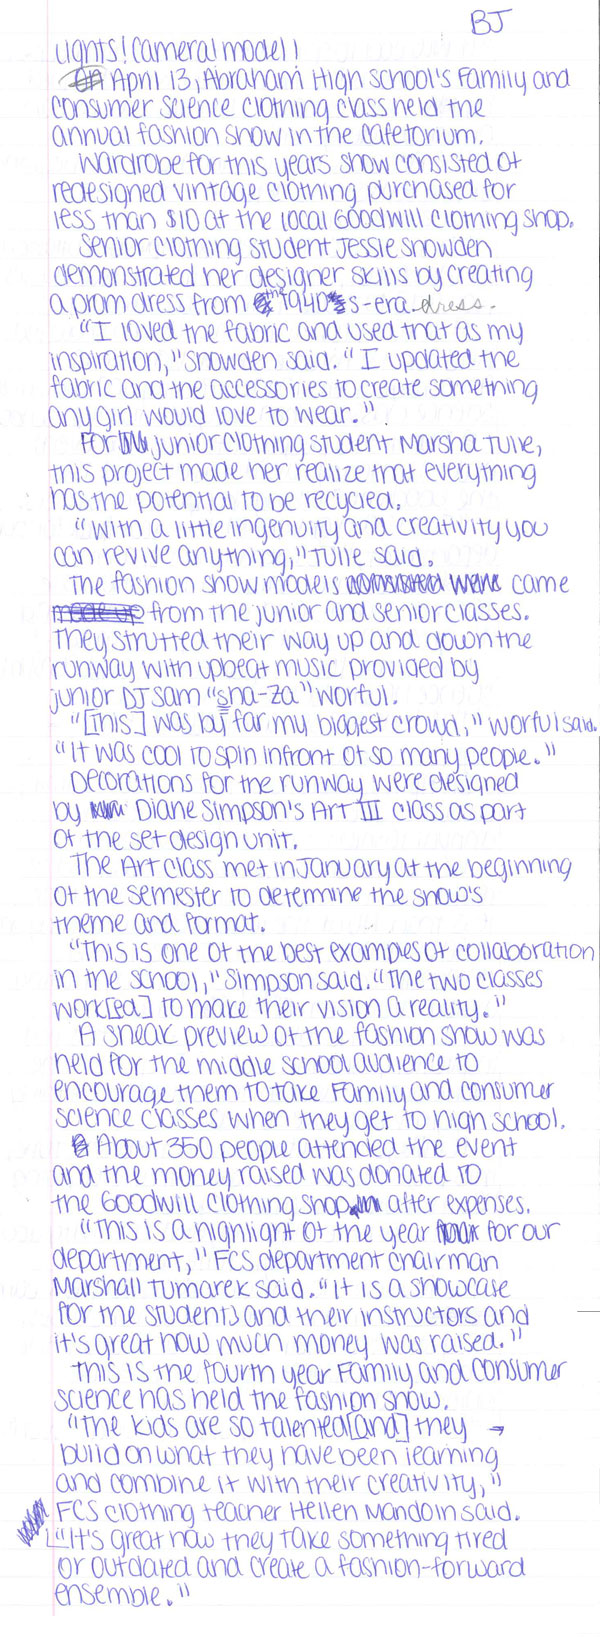 BJ
Lights! Camera! Model!
On April 13, Abraham High School's Family and
Consumer Science Clothing Class held the
annual fashion show in the cafetorium.
Wardrobe for this years show consisted of
redesigned vintage clothing purchased for
less than $10 at the local Goodwill Clothing Shop.
Senior clothing student Jessie Snowden
demonstrated her designer skills by creating
a prom dress from the 1940s-era dress.
"I loved the fabric and used that as my
inspiration," Snowden said. "I updated the
fabric and the accessories to create something
any girl would love to wear."
For junior clothing student Marsha Tulle,
this project made her realize that everything
has the potential to be recycled.
"With a little ingenuity and creativity you
can revive anything," Tulle said.
The fashion show models consisted were came
made up from the junior and senior classes.
They strutted their way up and down the
runway with upbeat music provided by
junior DJ Sam "sha-za" Worful.
"[This] was by far my biggest crowd," Worful said.
"It was cool to spin infront of so many people."
Decorations for the runway were designed
by Diane Simpson's Art III class as part
of the set design unit.
The Art class met in January at the beginning
of the semester to determine the show's
theme and format.
"This is one of the best examples of collaboration
in the school," Simpson said. "The two classes
work[ed] to make their vision a reality."
A sneak preview of the fashion show was
held for the middle school audience to
encourage them to take Family and Consumer
Science classes when they get to high school.
About 350 people attended the event
and the money raised was donated to
the Goodwill Clothing Shop after expenses.
"This is a highlight of the year for our
department," FCS department chairman
Marshall Tumarek said. "It is a showcase
for the students and their instructors and
it's great how much money was raised."
This is the fourth year Family and Consumer
Science has held the fashion show.
"The kids are so talented [and] they →
build on what they have been learning
and combine it with their creativity,"
FCS clothing teacher Hellen Mandoin said.
"It's great how they take something tired
or outdated and create a fashion-forward
ensemble."